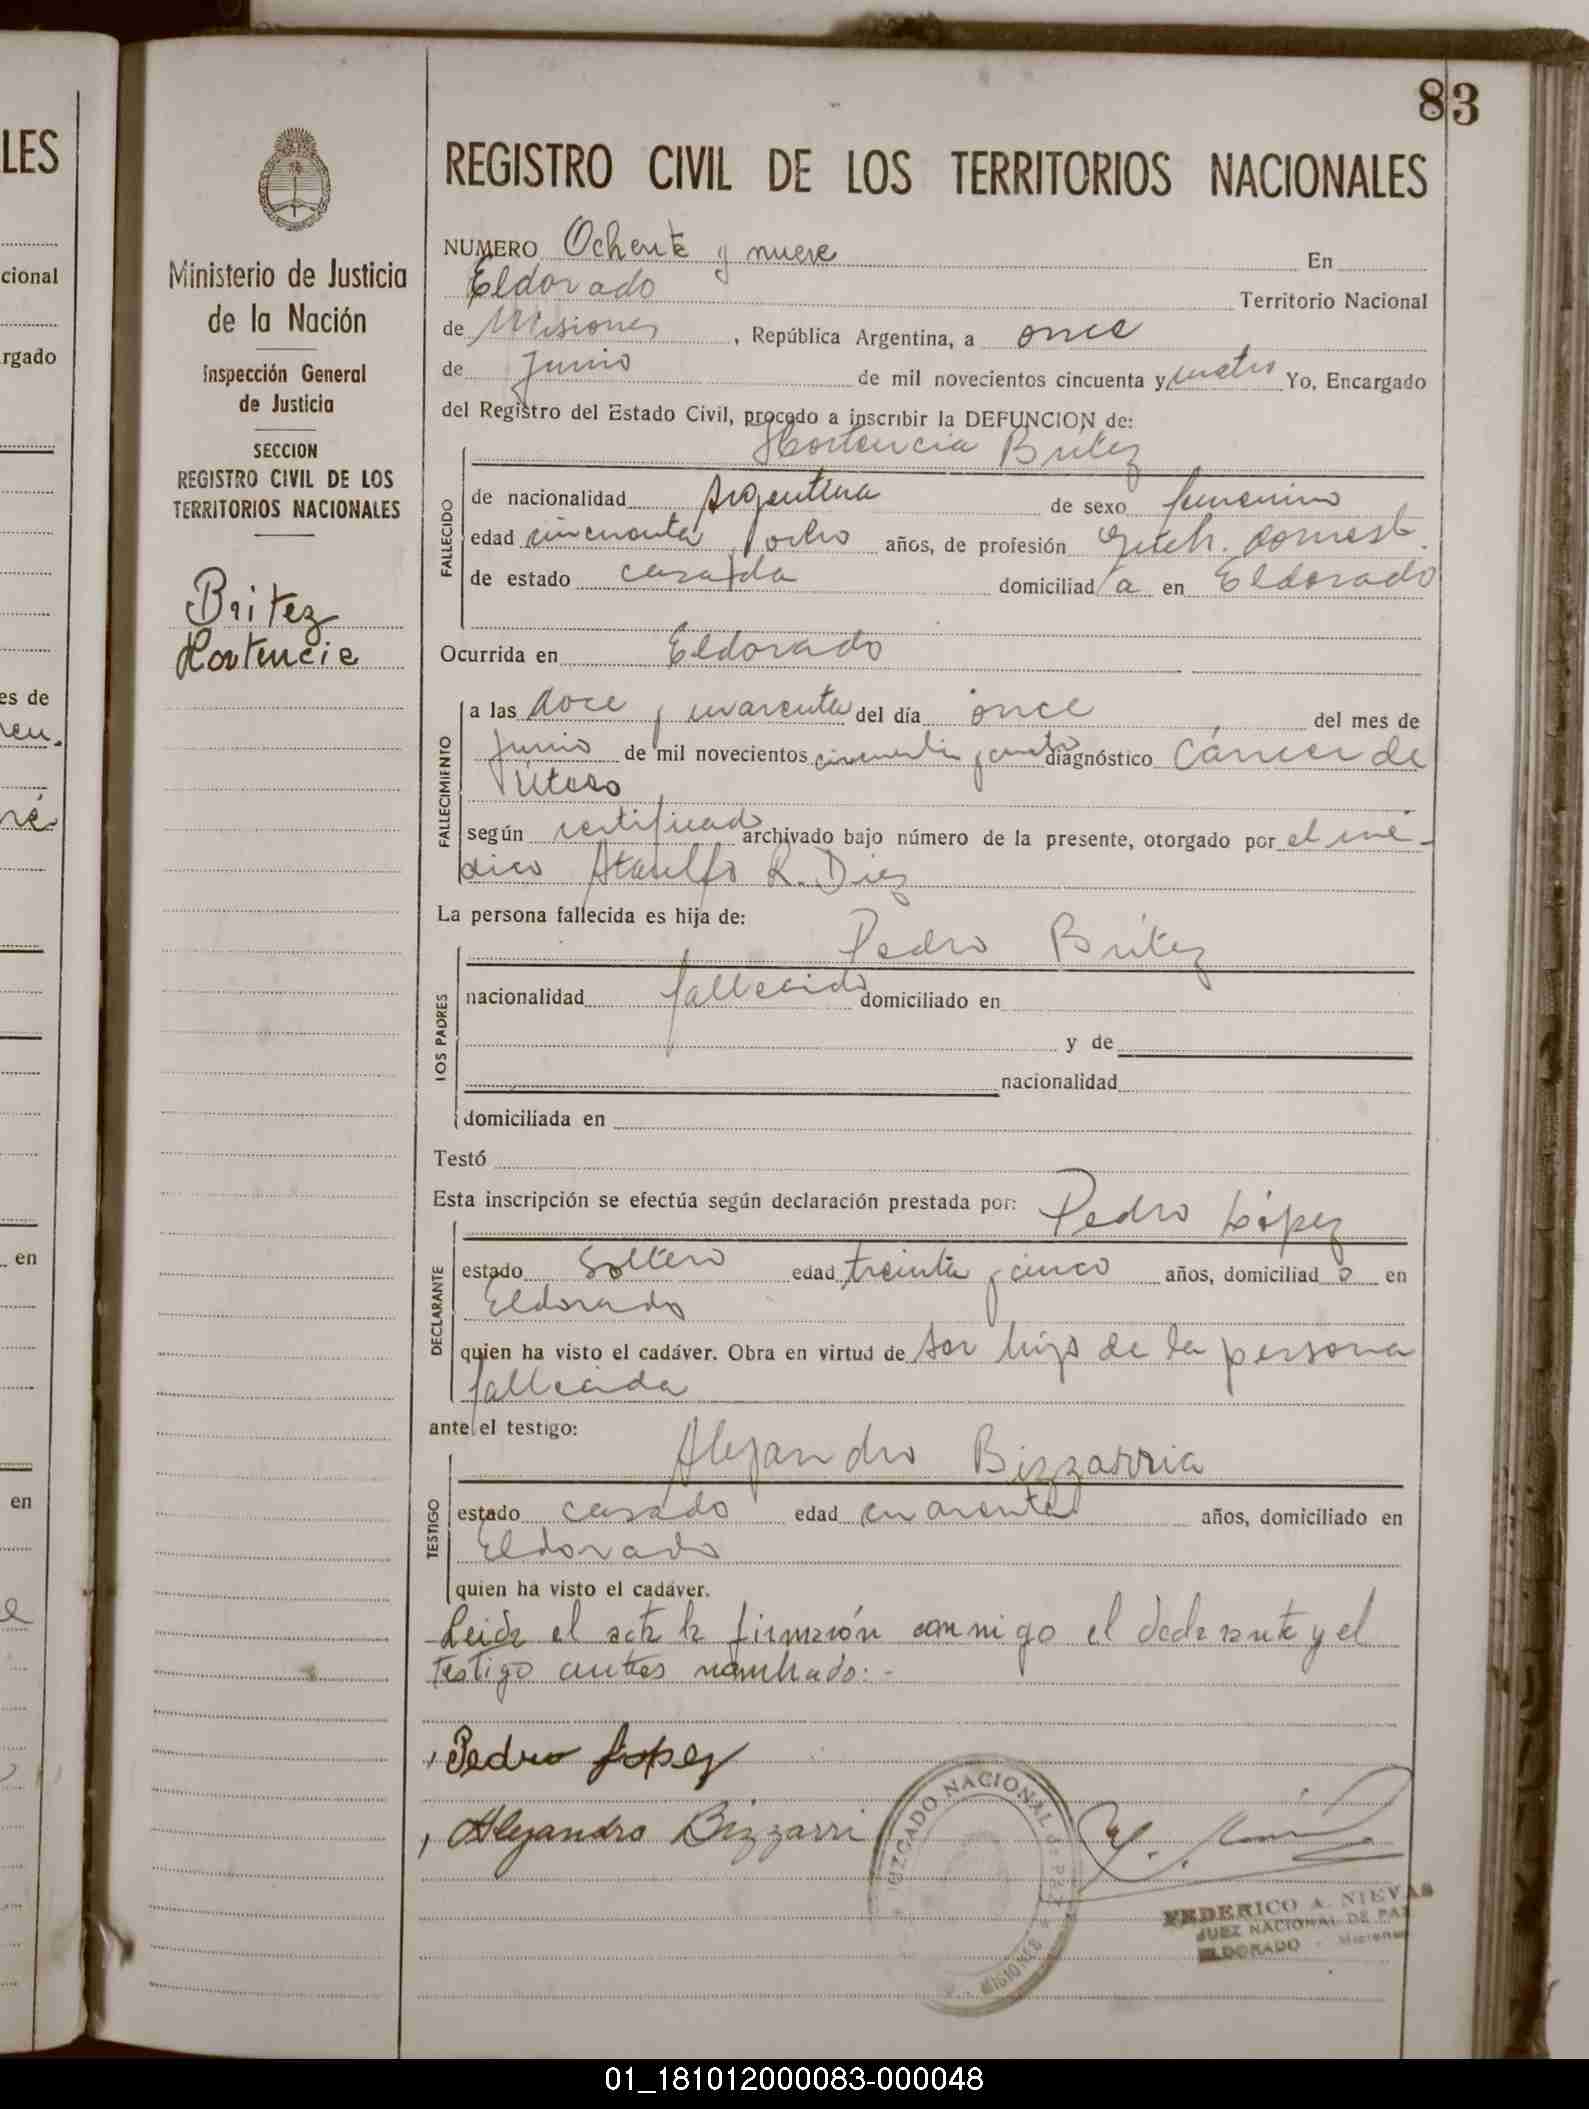 83
LES
cional
rgado
es de
en
en
Ministerio de Justicia
de la Nación
Inspección General
de Justicia
SECCION
REGISTRO CIVIL DE LOS
TERRITORIOS NACIONALES
Britez
Hortencia
REGISTRO CIVIL DE LOS TERRITORIOS NACIONALES
NUMERO Ochenta y nueve En
Eldorado Territorio Nacional
de Misiones, República Argentina, a once
de Junio de mil novecientos cincuenta y cuatro Yo, Encargado
del Registro del Estado Civil, procedo a inscribir la DEFUNCION de:
Hortencia Britez
FALLECIDO
de nacionalidad Argentina de sexo femenino
edad cincuenta y ocho años, de profesión domest.
de estado casada domiciliad a en Eldorado
Ocurrida en Eldorado
FALLECIMIENTO
a las doce y cuarenta del día once del mes de
Junio de mil novecientos cincuenta y cuatro diagnóstico Cáncer de
Utero
según certificado archivado bajo número de la presente, otorgado por el mé-
dico Ataulfo R. Diez
La persona fallecida es hija de:
Pedro Britez
LOS PADRES
nacionalidad fallecido domiciliado en
y de
nacionalidad
domiciliada en
Testó
Esta inscripción se efectúa según declaración prestada por: Pedro López
DECLARANTE
estado soltero edad treinta y cinco años, domiciliad o en
Eldorado
quien ha visto el cadáver. Obra en virtud de ser hijo de la persona
fallecida
ante el testigo:
Alejandro Bizzarria
TESTIGO
estado casado edad cuarenta años, domiciliado en
Eldorado
quien ha visto el cadáver.
Leida el acta la firmarón conmigo el declarante y el
testigo antes nombrado:-
Pedro Lopez
Alejandro Bizzarri
JUZGADO NACIONAL DE PAZ
MISIONES
FEDERICO A. NIEVAS
JUEZ NACIONAL DE PAZ
ELDORADO - Misiones
01_181012000083-000048